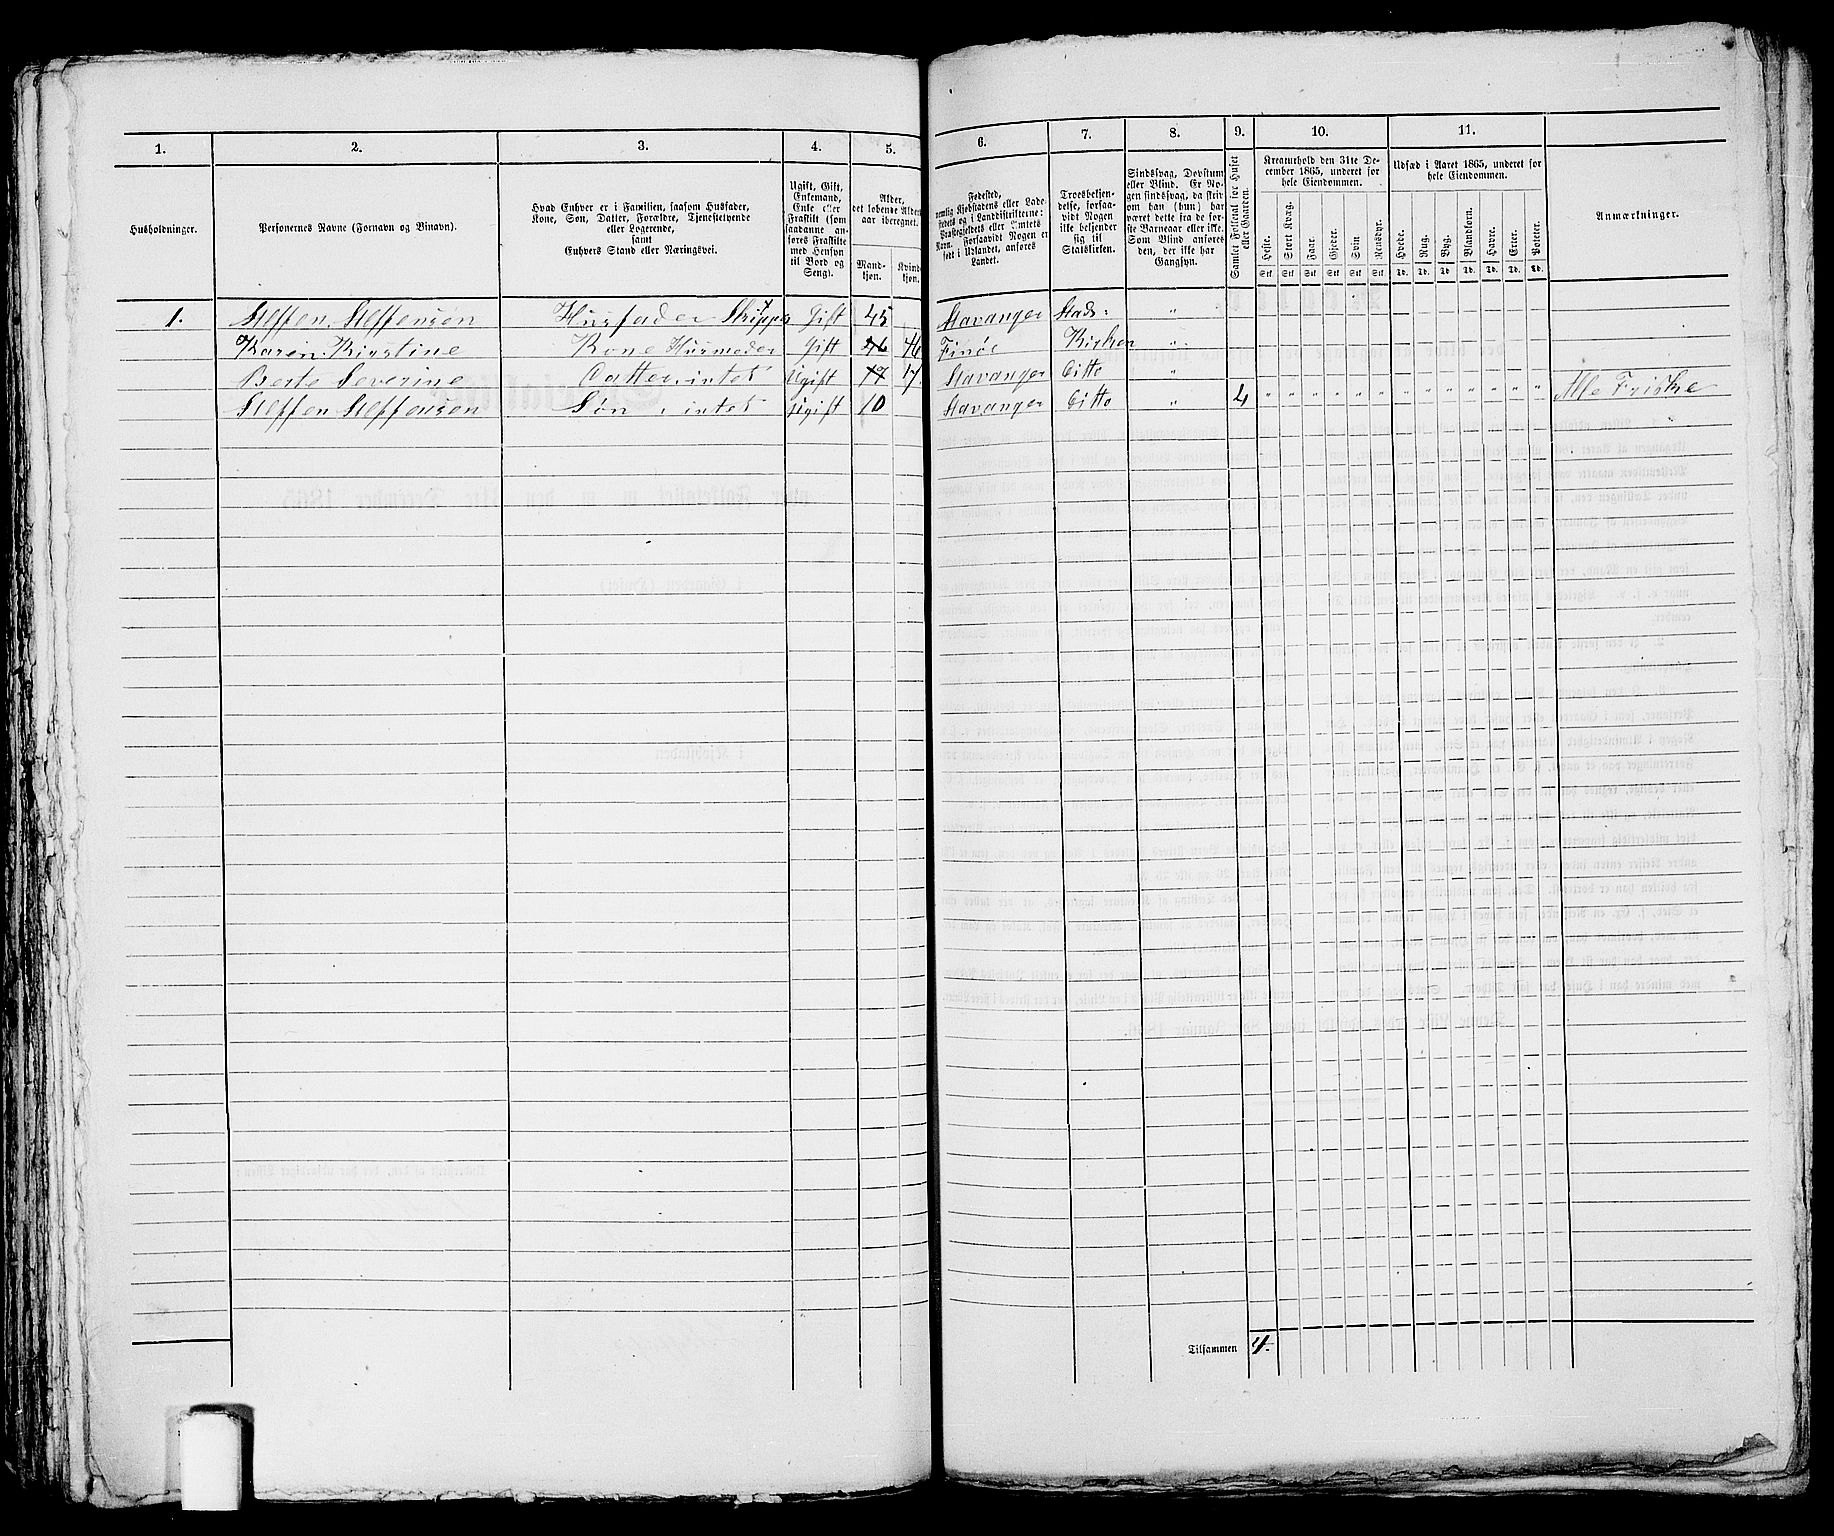 1.
2.
3.
4.
5.
6.
7.
8.
9.
10.
11.
Husholdninger.
Personernes Navne (Fornavn og Binavn).
Hvad Enhver er i Familien, saasom Husfader,
Kone, Søn, Datter, Forældre, Tjenestetyende
eller Logerende,
samt
Enhvers Stand eller Næringsvei.
Ugift, Gift,
Enkemand,
Enke eller
Fraskilt (som
saadanne an-
føres Fraskilte
med Hensyn
til Bord og
Seng).
Alder,
det løbende Alders-
aar iberegnet.
Mand-
kjøn.
Kvinde-
kjøn.
Fødested,
nemlig Kjøbstadens eller Lade-
stedets og i Landdistrikterne:
Præstegjeldets eller Amtets
Navn. Forsaavidt Nogen er
født i Udlandet, anføres
Landet.
Troesbekjen-
delse, forsaa-
vidt Nogen
ikke bekjender
sig til
Statskirken.
Sindssvag, Døvstum
eller Blind. Er No-
gen sindssvag, da skriv
om han (hun) har
været dette fra de før-
ste Barneaar eller ikke.
Som Blind anføres
den, der ikke har
Gangsyn.
Samlet Folketal for Huset
eller Gaarden.
Kreaturhold den 31te De-
cember 1865, underet for
hele Eiendommen.
Heste.
Stort Kvæg.
Faar.
Gjeder.
Svin
Rensdyr.
Stk Stk Stk Stk Stk Stk
Udsæd i Aaret 1865, underet for
hele Eiendommen.
Hvede.
Rug.
Byg.
Blandkorn.
Havre.
Erter.
Poteter.
Td. Td. Td. Td. Td. Td. Td.
Anmærkninger.
1. Steffen Steffensen Husfader Skipper Gift 45 Stavanger Stads: "
Karen Kirstine Kone Husmoder Gift 46 46 Finøe Kirken "
Berte Severine Datter, intet Ugift 17 17 Stavanger Ditto "
Steffen Steffensen Søn, intet Ugift 10 Stavanger Ditto " 4 " " " " " " " " " " " " " Alle Friske
Tilsammen 4.